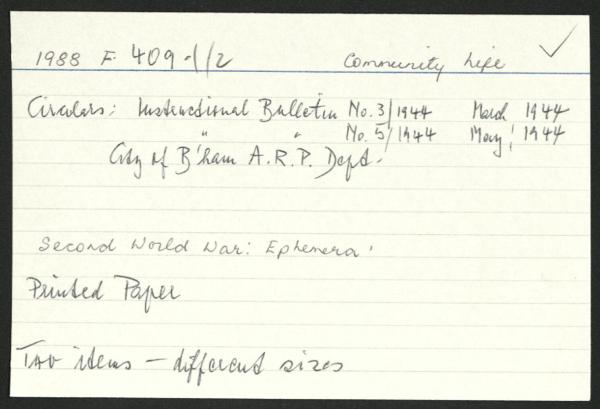 1988 F 409-1/2 Community Life
Circulars: Instructional Bulletin No. 3/1944 March 1944
" " No. 5/1944 May 1944
City of B'ham A.R.P. Dept.
Second World War: Ephemera
Printed Paper
Two items – different sizes